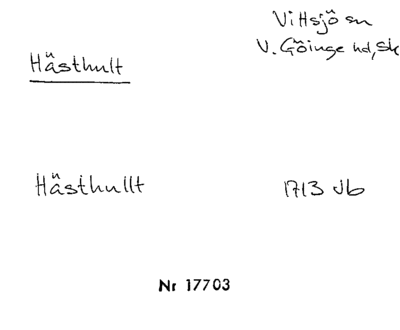 Vittsjö sn
V. Göinge hd, Sk
Hästhult
Hästhullt
1713 Jb
Nr 17703